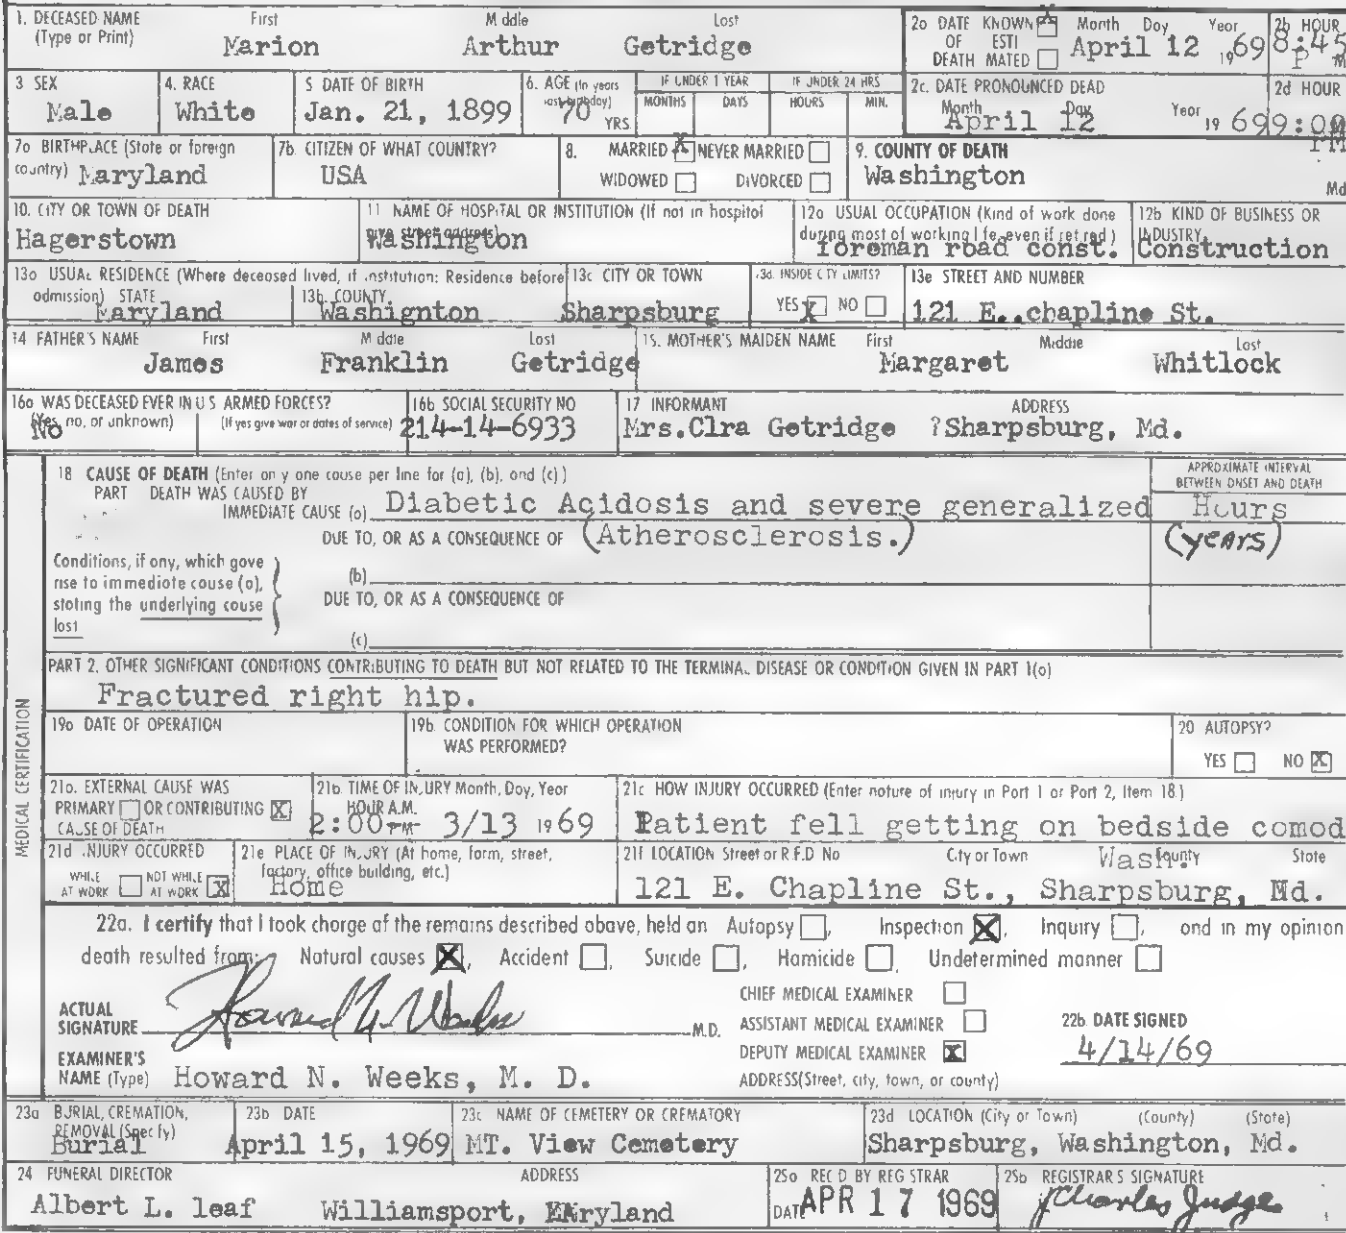 1. DECEASED NAME (Type or Print) First Middle Last
Marion Arthur Getridge
2a DATE OF DEATH KNOWN X ESTIMATED Month Day Year
April 12 1969
2b HOUR
8:45 P M
3 SEX
Male
4. RACE
White
5 DATE OF BIRTH
Jan. 21, 1899
6. AGE (In years last birthday)
70 YRS
IF UNDER 1 YEAR MONTHS DAYS
IF UNDER 24 HRS HOURS MIN.
2c. DATE PRONOUNCED DEAD Month Day Year
April 12 1969
2d HOUR
9:00 PM
7a BIRTHPLACE (State or foreign country)
Maryland
7b. CITIZEN OF WHAT COUNTRY?
USA
8. MARRIED X NEVER MARRIED
WIDOWED DIVORCED
9. COUNTY OF DEATH
Washington Md
10. CITY OR TOWN OF DEATH
Hagerstown
11 NAME OF HOSPITAL OR INSTITUTION (If not in hospital give street address)
Washington
12a USUAL OCCUPATION (Kind of work done during most of working life, even if retired)
foreman road const.
12b KIND OF BUSINESS OR INDUSTRY
Construction
13a USUAL RESIDENCE (Where deceased lived, if institution: Residence before admission) STATE
Maryland
13b COUNTY
Washignton
13c CITY OR TOWN
Sharpsburg
13d. INSIDE CITY LIMITS?
YES X NO
13e STREET AND NUMBER
121 E..chapline St.
14 FATHER'S NAME First Middle Last
James Franklin Getridge
15. MOTHER'S MAIDEN NAME First Middle Last
Margaret Whitlock
16a WAS DECEASED EVER IN U S ARMED FORCES? (Yes, no, or unknown) (If yes give war or dates of service)
No
16b SOCIAL SECURITY NO
214-14-6933
17 INFORMANT ADDRESS
Mrs.Clra Getridge ?Sharpsburg, Md.
MEDICAL CERTIFICATION
18 CAUSE OF DEATH (Enter only one cause per line for (a), (b), and (c))
APPROXIMATE INTERVAL BETWEEN ONSET AND DEATH
PART DEATH WAS CAUSED BY
IMMEDIATE CAUSE (a) Diabetic Acidosis and severe generalized Hours
DUE TO, OR AS A CONSEQUENCE OF (Atherosclerosis.) (years)
Conditions, if any, which gave rise to immediate cause (a), stating the underlying cause last
(b)
DUE TO, OR AS A CONSEQUENCE OF
(c)
PART 2. OTHER SIGNIFICANT CONDITIONS CONTRIBUTING TO DEATH BUT NOT RELATED TO THE TERMINAL DISEASE OR CONDITION GIVEN IN PART 1(a)
Fractured right hip.
19a DATE OF OPERATION
19b. CONDITION FOR WHICH OPERATION WAS PERFORMED?
20 AUTOPSY?
YES NO X
21a. EXTERNAL CAUSE WAS
PRIMARY OR CONTRIBUTING X
CAUSE OF DEATH
21b. TIME OF INJURY Month, Day, Year
HOUR A.M. P.M.
2:00 3/13 1969
21c HOW INJURY OCCURRED (Enter nature of injury in Part 1 or Part 2, Item 18)
Patient fell getting on bedside comod
21d INJURY OCCURRED
WHILE AT WORK NOT WHILE AT WORK X
21e PLACE OF INJURY (At home, farm, street, factory, office building, etc.)
Home
21f LOCATION Street or R.F.D No City or Town County State
Wash.
121 E. Chapline St., Sharpsburg, Md.
22a. I certify that I took charge of the remains described above, held an Autopsy , Inspection X, Inquiry , and in my opinion
death resulted from: Natural causes X, Accident , Suicide , Homicide , Undetermined manner
ACTUAL SIGNATURE Howard N. Weeks M.D.
CHIEF MEDICAL EXAMINER
ASSISTANT MEDICAL EXAMINER
DEPUTY MEDICAL EXAMINER X
22b. DATE SIGNED
4/14/69
EXAMINER'S NAME (Type) Howard N. Weeks, M. D.
ADDRESS(Street, city, town, or county)
23a BURIAL, CREMATION, REMOVAL (Specify)
Burial
23b DATE
April 15, 1969
23c NAME OF CEMETERY OR CREMATORY
MT. View Cemetery
23d LOCATION (City or Town) (County) (State)
Sharpsburg, Washington, Md.
24 FUNERAL DIRECTOR ADDRESS
Albert L. leaf Williamsport, MAryland
25a REC'D BY REGISTRAR
DATE APR 17 1969
25b REGISTRARS SIGNATURE
Charles Judge